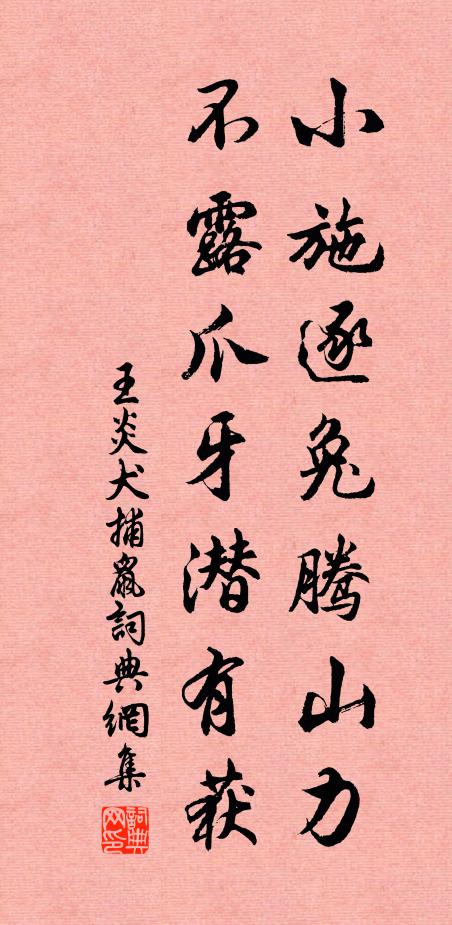 小施逐兔腾山力
不露爪牙潜有获
王炎犬捕鼠詞典網集
詞典网印